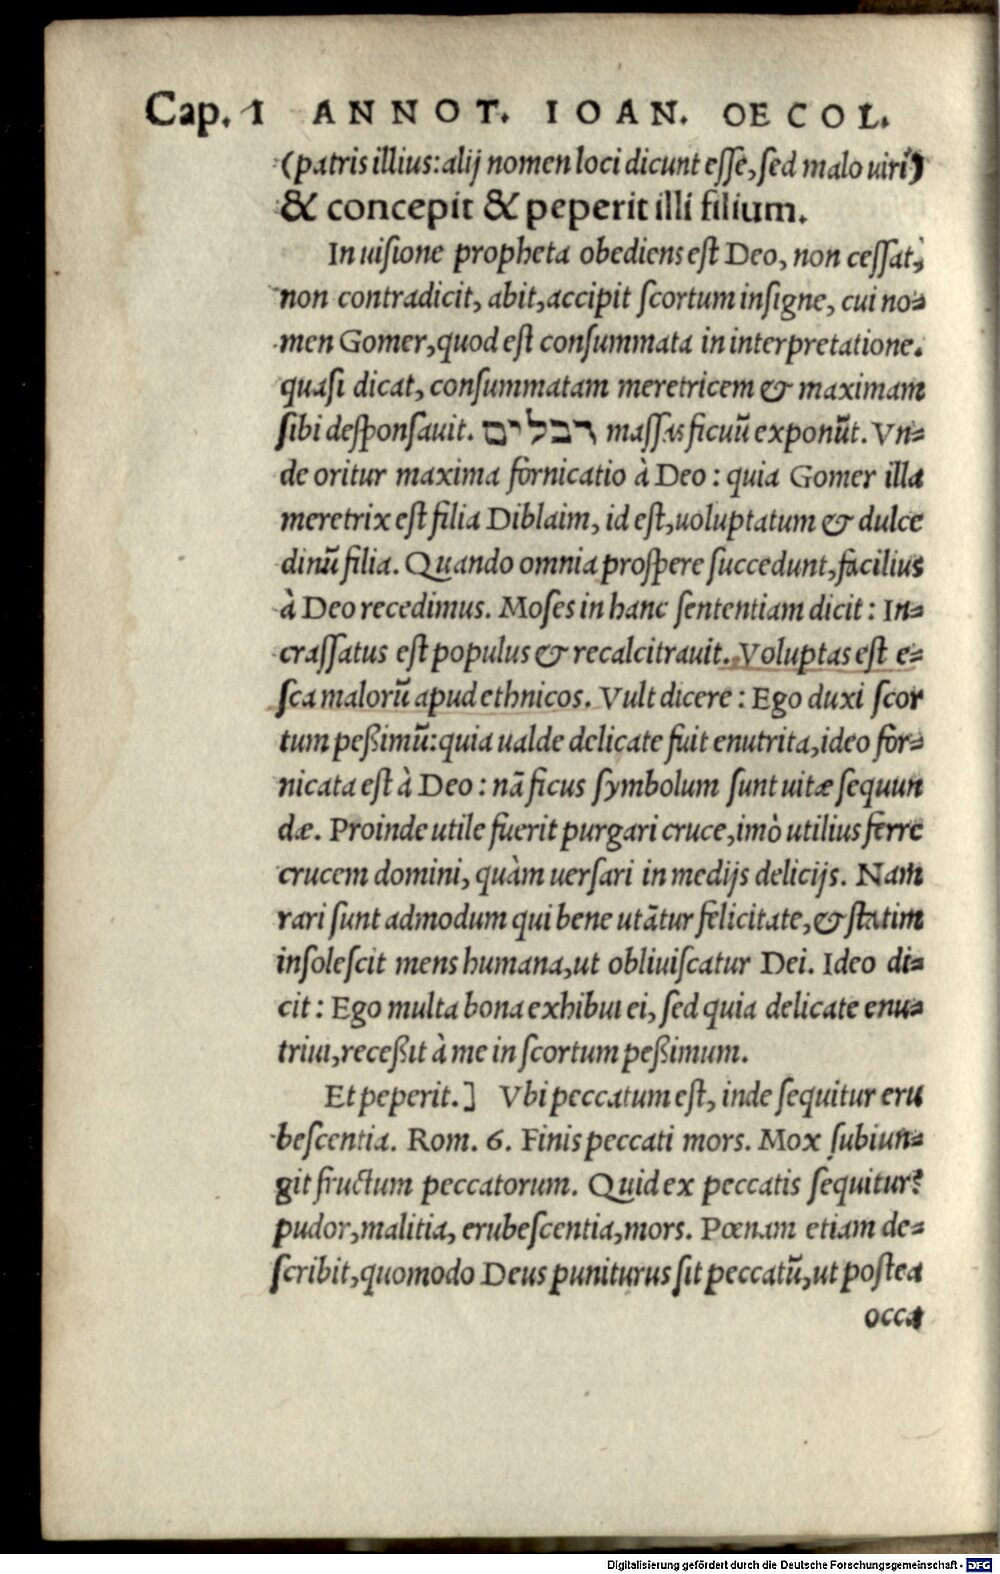 Cap. 1 ANNOT. IOAN. OECOL.
(patris illius: alij nomen loci dicunt esse, sed malo uiri)
& concepit & peperit illi filium.
In uisione propheta obediens est Deo, non cessat,
non contradicit, abit, accipit scortum insigne, cui no=
men Gomer, quod est consummata in interpretatione.
quasi dicat, consummatam meretricem & maximam
sibi desponsauit. דבלים massas ficuū exponūt. Vn=
de oritur maxima fornicatio à Deo: quia Gomer illa
meretrix est filia Diblaim, id est, uoluptatum & dulce
dinū filia. Quando omnia prospere succedunt, facilius
à Deo recedimus. Moses in hanc sententiam dicit: In=
crassatus est populus & recalcitrauit. Voluptas est e=
sca malorū apud ethnicos. Vult dicere: Ego duxi scor
tum peßimū: quia ualde delicate fuit enutrita, ideo for=
nicata est à Deo: nā ficus symbolum sunt uitæ sequun
dæ. Proinde utile fuerit purgari cruce, imò utilius ferre
crucem domini, quàm uersari in medijs delicijs. Nam
rari sunt admodum qui bene utātur felicitate, & statim
insolescit mens humana, ut obliuiscatur Dei. Ideo di=
cit: Ego multa bona exhibui ei, sed quia delicate enu=
triui, receßit à me in scortum peßimum.
Et peperit.] Vbi peccatum est, inde sequitur eru
bescentia. Rom. 6. Finis peccati mors. Mox subiun=
git fructum peccatorum. Quid ex peccatis sequitur?
pudor, malitia, erubescentia, mors. Pœnam etiam de=
scribit, quomodo Deus puniturus sit peccatū, ut postea
occa
Digitalisierung gefördert durch die Deutsche Forschungsgemeinschaft - DFG